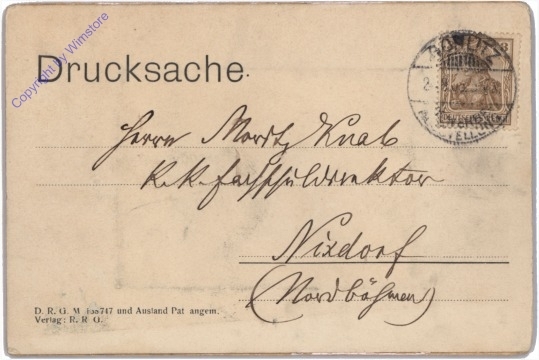 Copyright by Wimstore
Drucksache.
GÖRLITZ
3
Herrn Moritz Knab
K. K. Fachschuldirektor
Nixdorf
(Nordböhmen)
D. R. G. M 138747 und Ausland Pat angem.
Verlag: R. R. G.